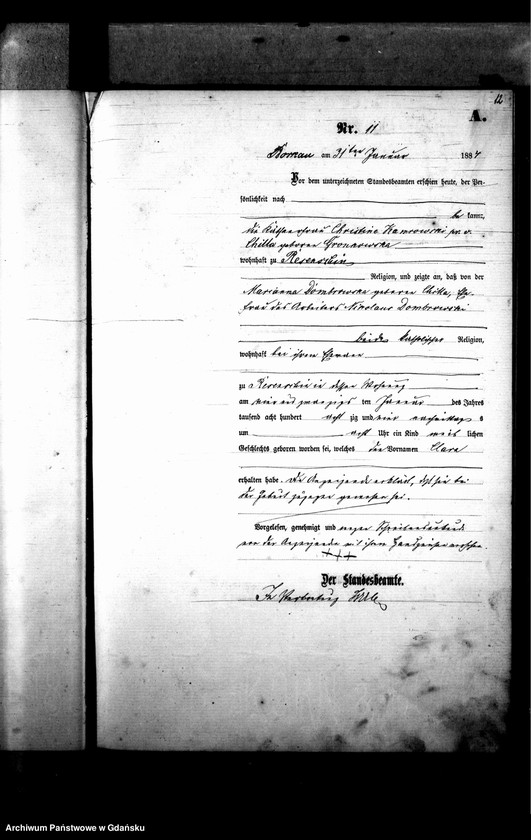 12
A.
Nr. 11
am 31ten Januar 1884
Vor dem unterzeichneten Standesbeamten erschien heute, der Per-
sönlichkeit nach
be kannt,
die Christine Kamrowski
geboren Gronkowska
wohnhaft zu
Religion, und zeigte an, daß von der
Marianna Dombrowska geborene
frau des Arbeiters Nikolaus Dombrowski
beide katholischer Religion,
wohnhaft bei ihrem Ehemann
zu in dessen Wohnung
am vier und zwanzigsten Januar des Jahres
tausend acht hundert acht zig und vier nachmittags
um acht Uhr ein Kind weib lichen
Geschlechts geboren worden sei, welches den Vornamen Clara
erhalten habe. Die Anzeigende erklärt, daß sie bei
der Geburt zugegen gewesen sei.
Vorgelesen, genehmigt und wegen Schreibensunkunde
von der Anzeigenden mit ihrem Handzeichen versehen.
+++
Der Standesbeamte.
In Vertretung
Archiwum Państwowe w Gdańsku